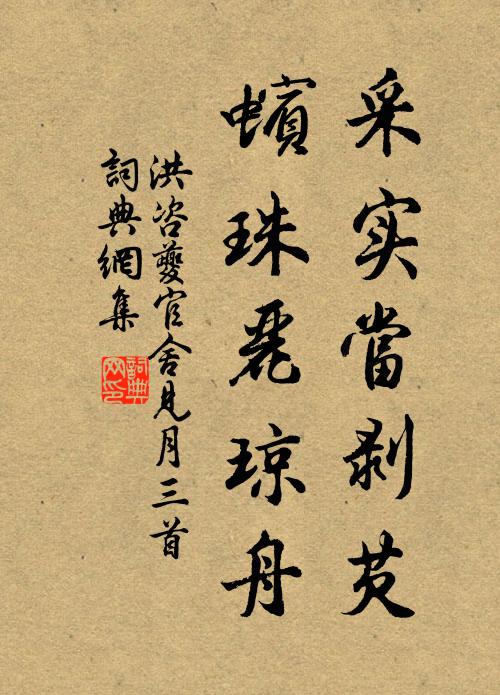 采实當剥芡
蠙珠麗琼舟
洪咨夔官舍見月三首
詞典網集
詞典
网印